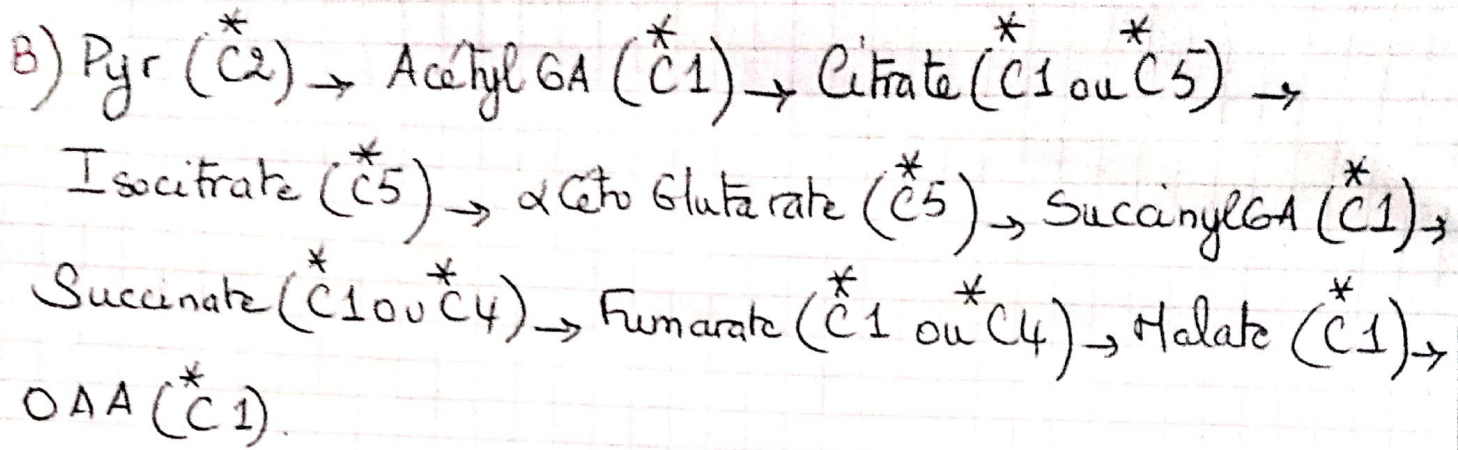 B) Pyr (*C2) → AcétylCoA (*C1) → Citrate (*C1 ou *C5) →
Isocitrate (*C5) → αCéto Glutarate (*C5) → SuccinylCoA (*C1) →
Succinate (*C1 ou *C4) → Fumarate (*C1 ou *C4) → Malate (*C1) →
OAA (*C1).